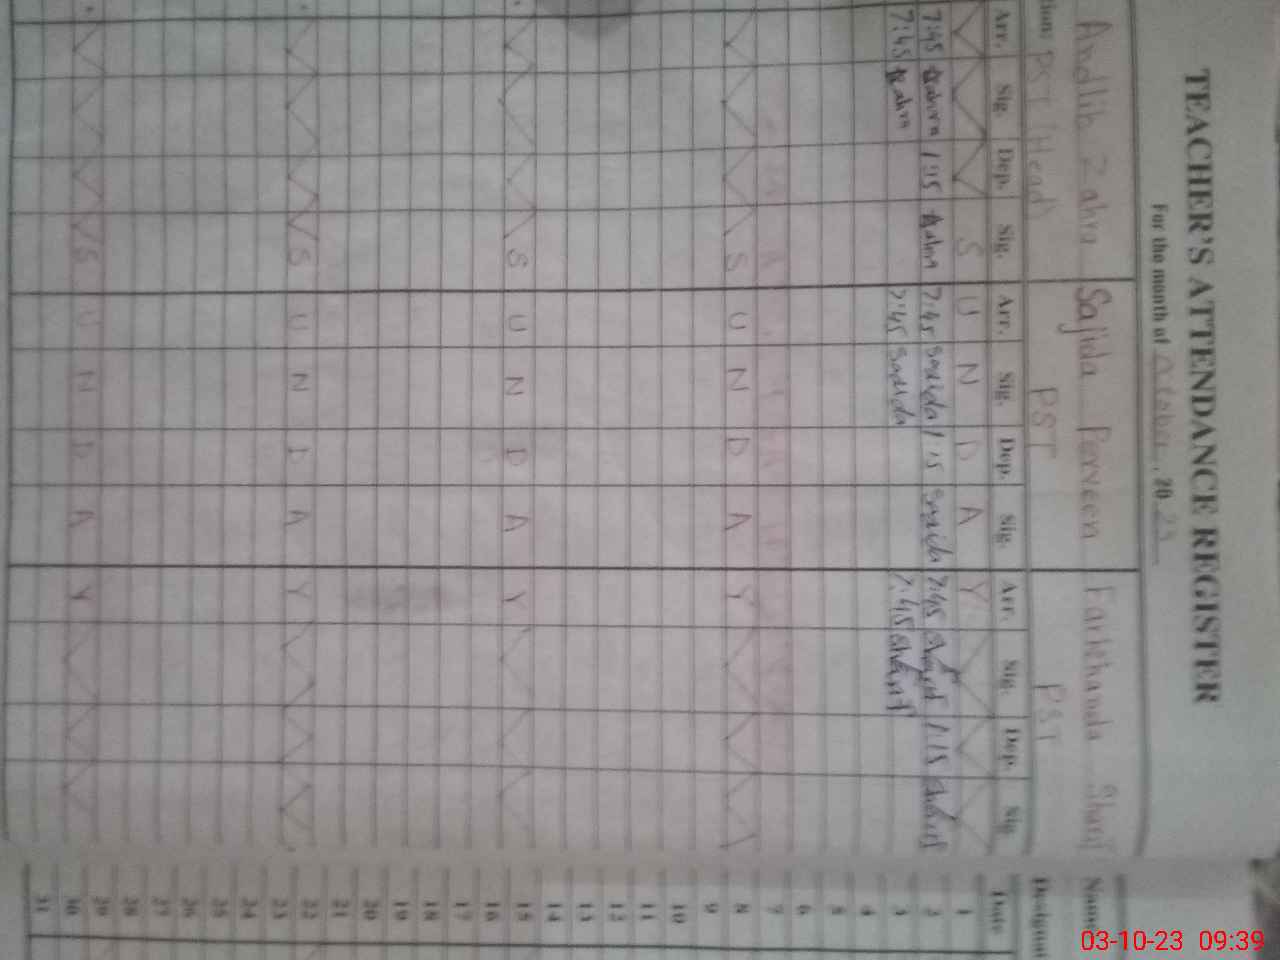 TEACHER'S ATTENDANCE REGISTER
For the month of October, 2023
Andlib Zahra Sajida Parveen Farkhanda Sharif Name
PST (Head) PST PST
Arr. Sig. Dep. Sig. Arr. Sig. Dep. Sig. Arr. Sig. Dep. Sig. Date
S U N D A Y 1
7:45 Zahra 1:15 Zahra 7:45 Sajida 1:15 Sajida 7:45 Sharif 1:15 Sharif 2
7:45 Zahra 7:45 Sajida 7:45 Sharif 3
4
5
6
7
S U N D A Y 8
9
10
11
12
13
14
S U N D A Y 15
16
17
18
19
20
21
S U N D A Y 22
23
24
25
26
27
28
S U N D A Y 29
30
31
03-10-23 09:39